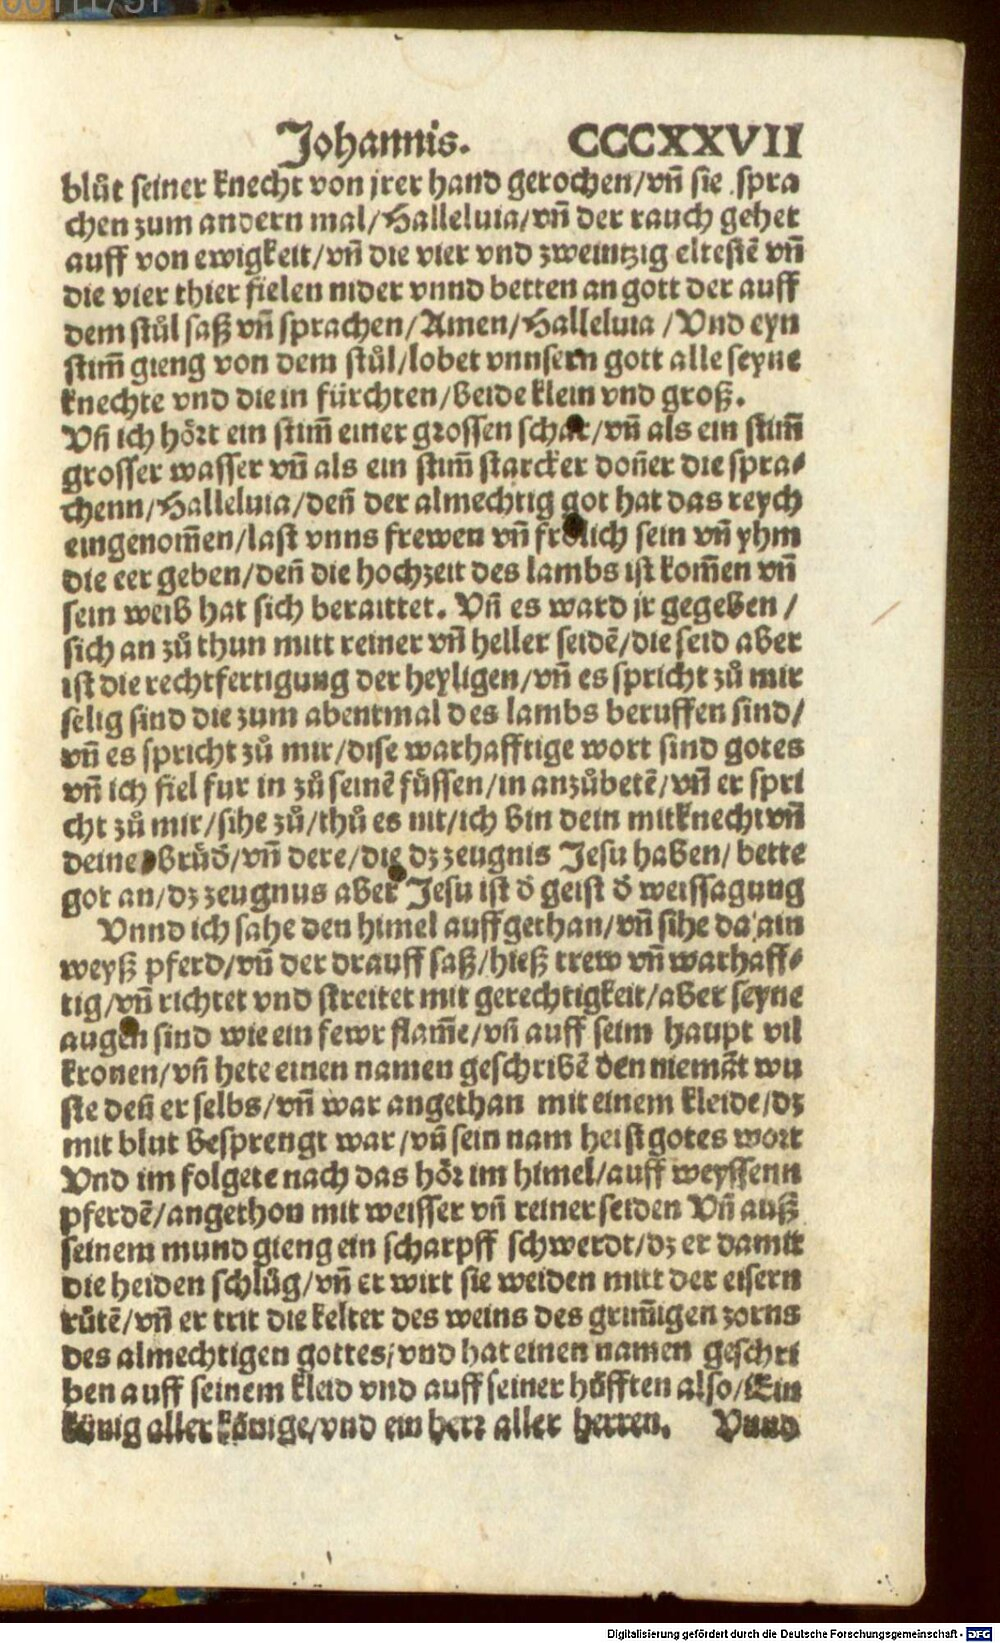 Johannis. CCCXXVII
blůt seiner knecht von jrer hand gerochen/vñ sie spra
chen zum andern mal/Halleluia/vñ der rauch gehet
auff von ewigkeit/vñ die vier vnd zweintzig eltestē vñ
die vier thier fielen nider vnnd betten an gott der auff
dem stůl saß vñ sprachen/Amen/Halleluia/Vnd eyn
stim̃ gieng von dem stůl/lobet vnnsern gott alle seyne
knechte vnd die in fürchten/beide klein vnd groß.
Vñ ich hört ein stim̃ einer grossen schar/vñ als ein stim̃
grosser wasser vñ als ein stim̃ starcker doñer die spra-
chenn/Halleluia/deñ der almechtig got hat das reych
eingenom̃en/last vnns frewen vñ frölich sein vñ yhm
die eer geben/deñ die hochzeit des lambs ist kom̃en vñ
sein weib hat sich beraittet. Vñ es ward jr gegeben/
sich an zů thun mitt reiner vñ heller seidē/die seid aber
ist die rechtfertigung der heyligen/vñ es spricht zů mir
selig sind die zum abentmal des lambs beruffen sind/
vñ es spricht zů mir/dise warhafftige wort sind gotes
vñ ich fiel fur in zů seinē füssen/in anzůbetē/vñ er spri
cht zů mir/sihe zů/thů es nit/ich bin dein mitknecht vñ
deine brůd̄/vñ dere/die dz zeugnis Jesu haben/bette
got an/dz zeugnus aber Jesu ist d̄ geist d̄ weissagung
Vnnd ich sahe den himel auffgethan/vñ sihe da ain
weyß pferd/vñ der drauff saß/hieß trew vñ warhaff-
tig/vñ richtet vnd streitet mit gerechtigkeit/aber seyne
augen sind wie ein fewr flam̃e/vñ auff seim haupt vil
kronen/vñ hete einen namen geschribē den niemāt wu
ste deñ er selbs/vñ war angethan mit einem kleide/dz
mit blut besprengt war/vñ sein nam heist gotes wort
Vnd im folgete nach das hör im himel/auff weyssenn
pferdē/angethon mit weisser vñ reiner seiden Vñ auß
seinem mund gieng ein scharpff schwerdt/dz er damit
die heiden schlůg/vñ er wirt sie weiden mitt der eisern
růtē/vñ er trit die kelter des weins des grim̃igen zorns
des almechtigen gottes/vnd hat einen namen geschri
ben auff seinem kleid vnd auff seiner höfften also/Ein
könig aller könige/vnd ein herr aller herren. Vnnd
Digitalisierung gefördert durch die Deutsche Forschungsgemeinschaft - DFG